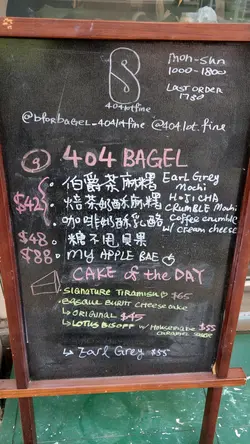 404lotfine
mon-sun
1000-1800
Last order
1730
@bforbagel_404lotfine @404lot.fine
404 BAGEL
伯爵茶麻糬 Earl Grey Mochi
$42 焙茶奶酥麻糬 HOJICHA CRUMBLE Mochi
咖啡奶酥乳酪 Coffee crumble w/ cream cheese
$48 糖不甩貝果
$88 my APPLE BAE
CAKE of the DAY
SIGNATURE TIRAMISU $65
BASQUE BURNT CHEESECAKE
↳ ORIGINAL $45
↳ LOTUS BISCOFF w/ Housemade $55
caramel sauce
↳ Earl Grey $55